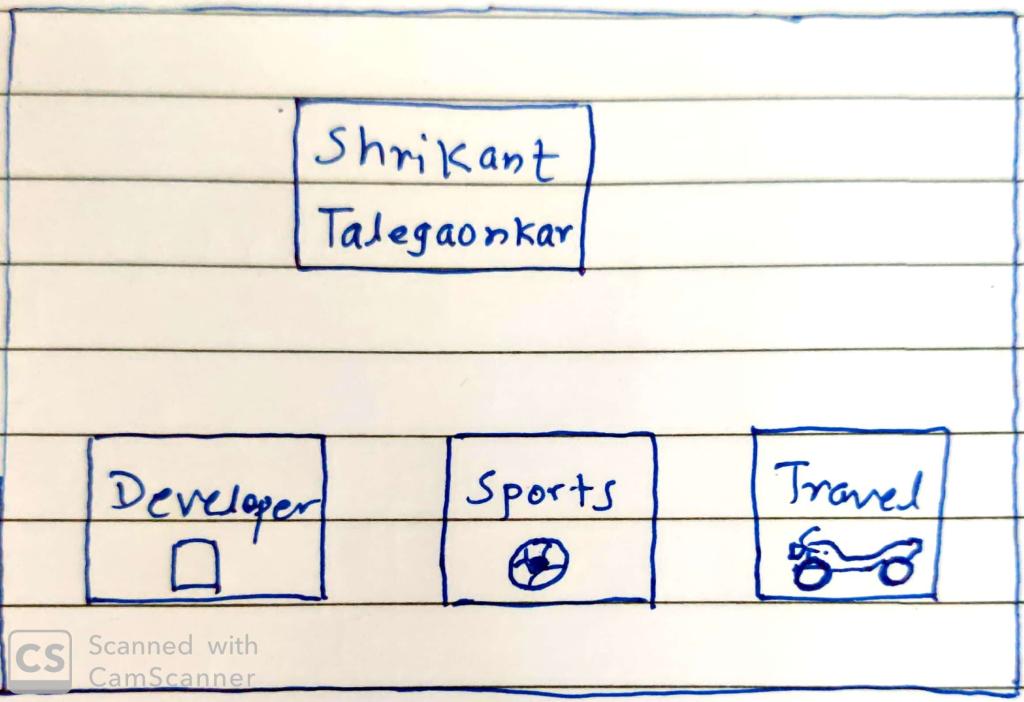 Shrikant
Talegaonkar
Developer
Sports
Travel
CS
Scanned with
CamScanner